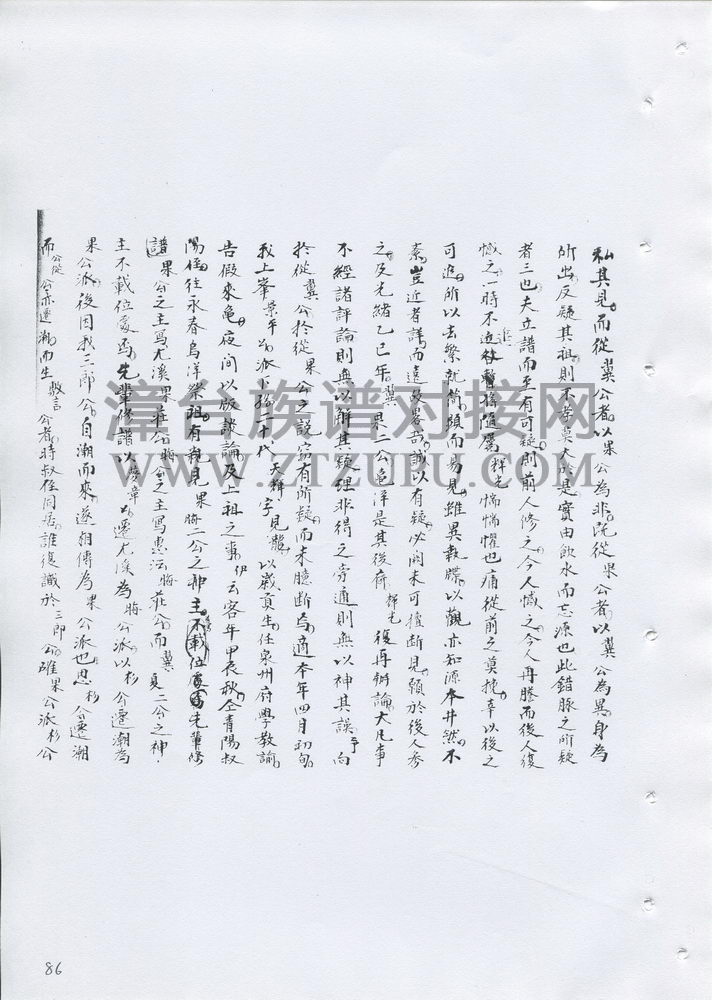 私其見而從翼公者以果公為非既從果公者以翼公為異身為
所出反疑其祖則不孝莫大於是實由飲水而忘源也此錯脉之所疑
者三也夫立譜而至有可疑則前人修之今人憾之今人再謄而後人復
憾之一時不追輝光惴惴懼也痛從前之莫挽幸以後之
可追所以去繁就簡顯而易見雖異執牒以觀亦知源本井然不
紊豈近者詳而遠故畧哉誠以有疑必闕未可擅斷見顧於後人參
之及光緒乙巳年翼果二公是洋是其後裔輝光復再辯論大凡事
不經諸評論則無以解其疑理非得之旁通則無以神其誤予向
於從翼公於從果公之說窃有所疑而未臆斷焉適本年四月初旬
我上峯景平公派下拾二十代天群字見龍以歲貢生任泉州府學教諭
告假來龟夜間以版談論及上祖之事伊云客年甲辰秋仝青陽叔
陽侄往永春烏洋祭祖有親見果將二公之神主不載位處爲先輩修
譜果公之主寫尤溪果莊公將公之主寫惠沄將莊公而翼夏二公之神
主不載位處爲先輩修譜以公遷尤溪為將公派以杉公遷潮為
果公派後因我三郎公自潮而來遂相傳為果公派也思杉公遷潮
而公從公亦遷潮而生敷言公者時叔侄同居誰復識於三郎公確果公派杉公
漳台族谱对接网
WWW.ZTZUPU.COM
86